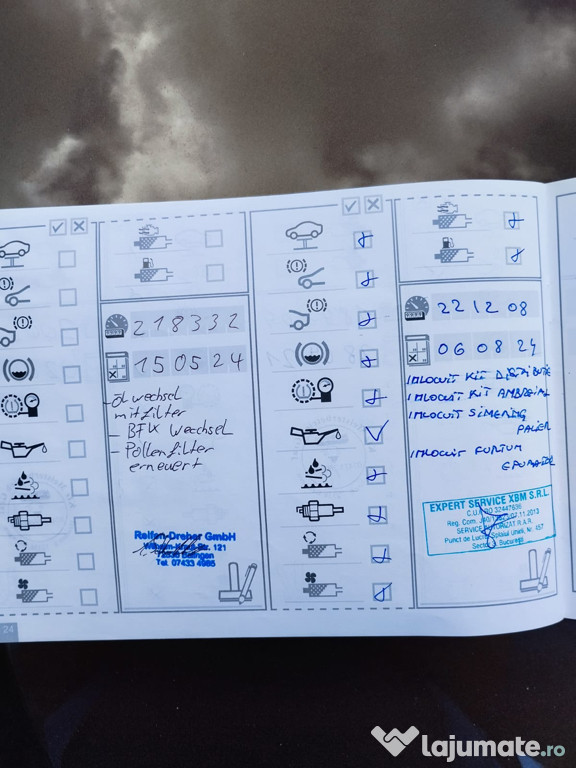 218332
150524
- Ölwechsel
mitfilter
- BFlX Wechsel
- Pollenfilter
erneuert
Reifen-Dreher GmbH
Str. 121
72336 Balingen
Tel. 07433 4985
24
221208
060824
INLOCUIT KIT DISTRIBUTIE
INLOCUIT KIT AMBREIAJ
INLOCUIT SIMERING
PALIER
INLOCUIT FURTUN
EPURATOR
EXPERT SERVICE XBM S.R.L.
32447636
Reg. Com.
SERVICE AUTORIZAT R.A.R.
Punct de Lucru: Splaiul Unirii, Nr. 457
Sector București
Lajumate.ro